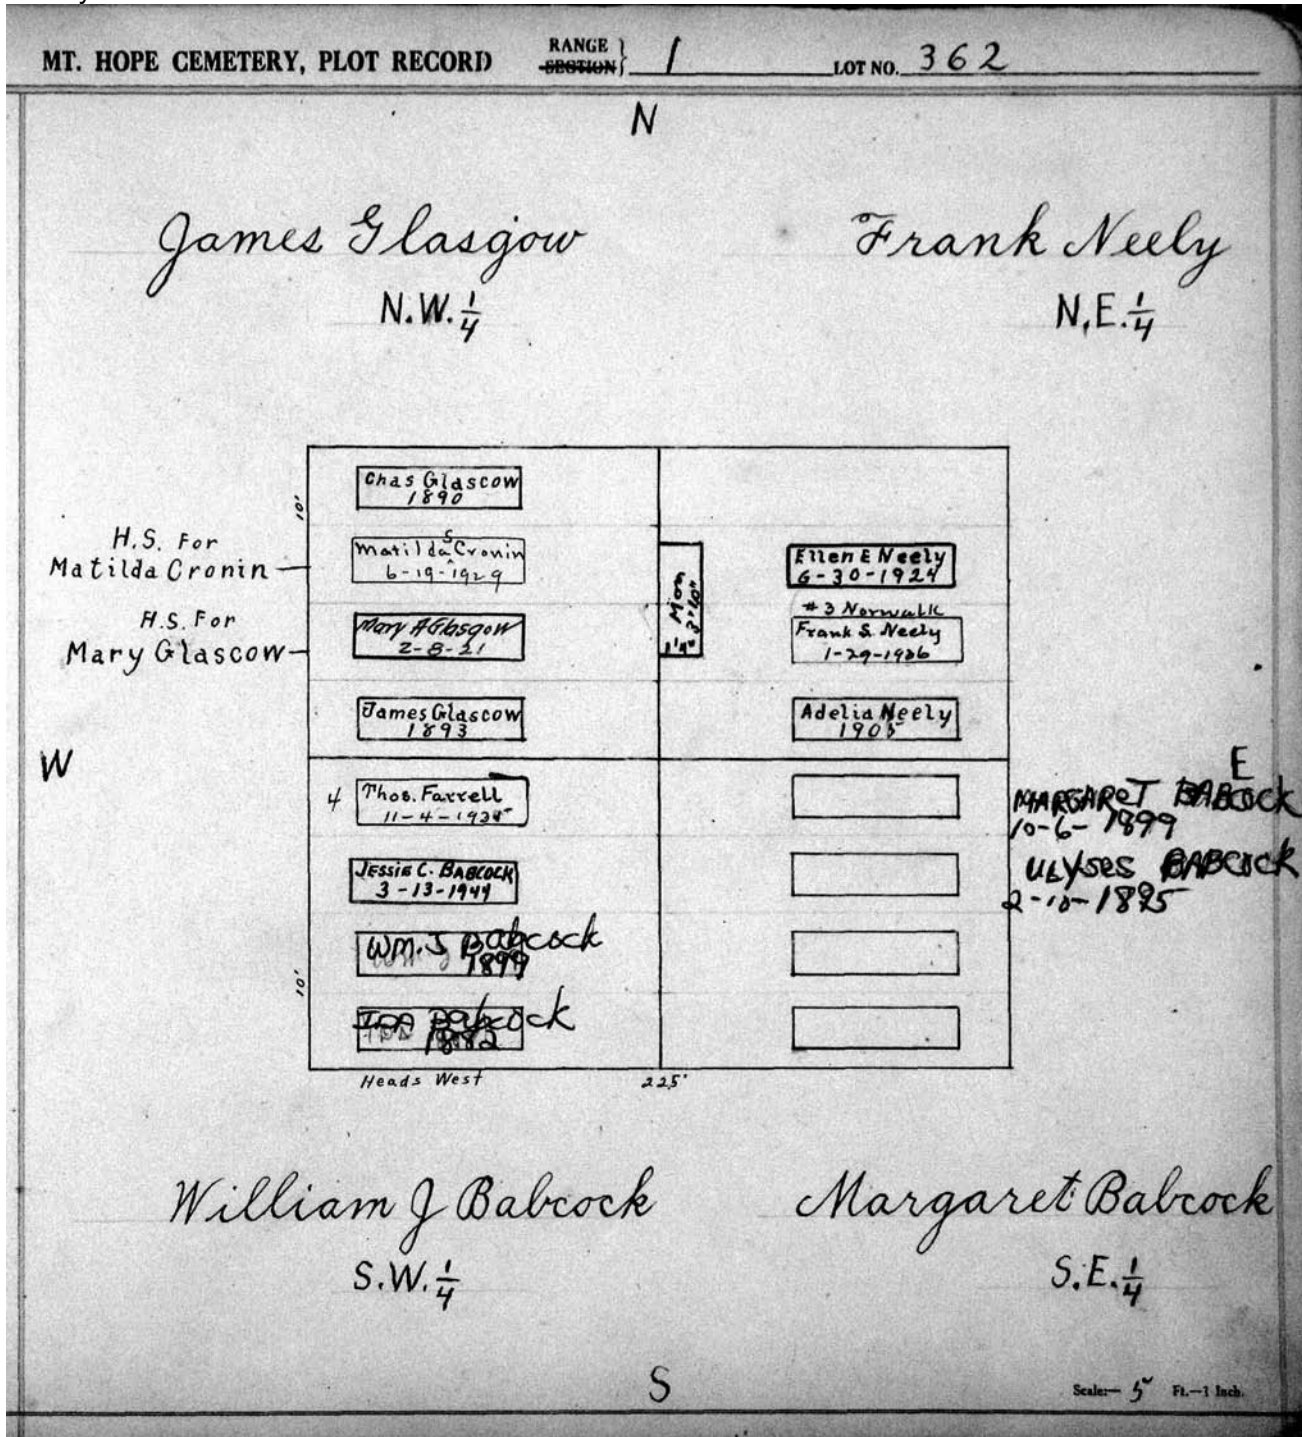 MT. HOPE CEMETERY, PLOT RECORD RANGE } SECTION } 1 LOT NO. 362
N
James Glasgow
N.W. 1/4
Frank Neely
N.E. 1/4
10'
Chas Glascow
1890
H.S. For
Matilda Cronin
Matilda S Cronin
6-19-1929
H.S. For
Mary Glascow
Mary A Glasgow
2-8-21
James Glascow
1893
Mon
1'4"
Ellen E Neely
6-30-1924
#3 Norwalk
Frank S. Neely
1-29-1926
Adelia Neely
1905
W
E
4 Thos. Farrell
11-4-1925
JESSIE C. BABCOCK
3-13-1944
Wm. J Babcock
1899
10'
Ida Babcock
1882
MARGAReT BABCOCK
10-6-1899
ULYSSes BABCOCK
2-10-1895
Heads West
225'
William J Babcock
S.W. 1/4
Margaret Babcock
S.E. 1/4
S
Scale:— 5 Ft.—1 Inch.